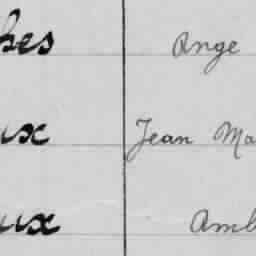 hes Ange
ux Jean Ma
ux Amb